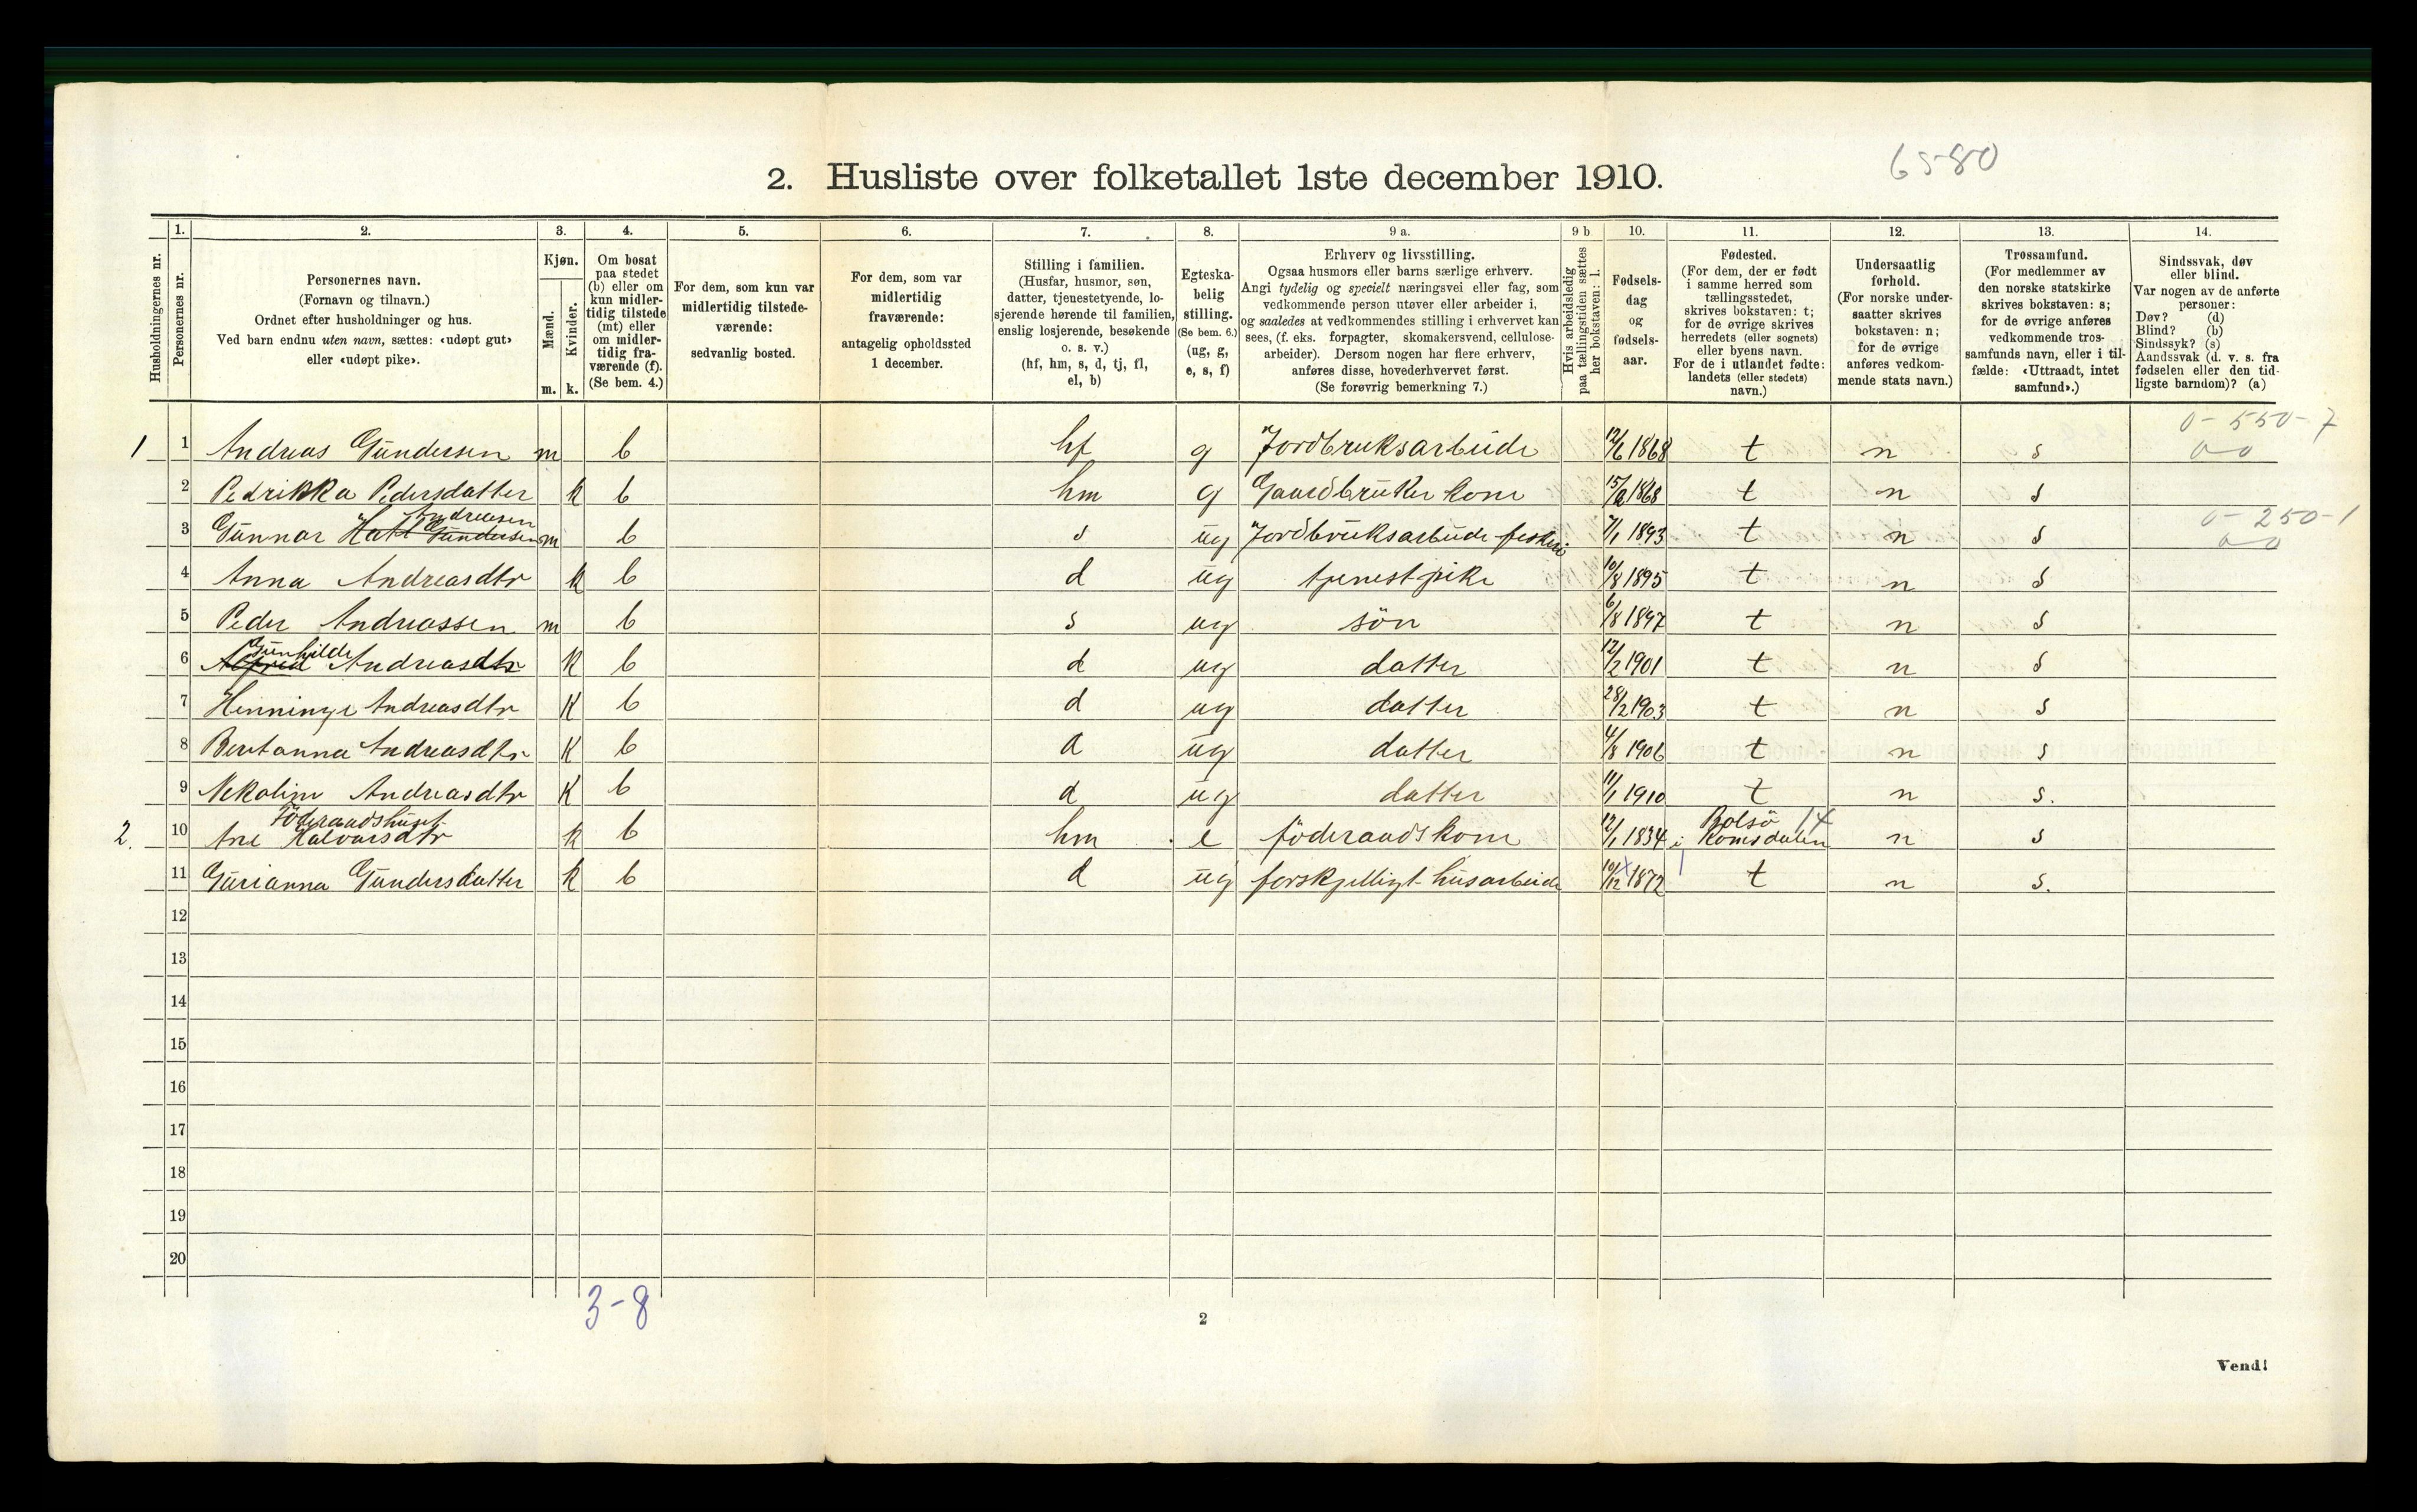 2. Husliste over folketallet 1ste december 1910.
6580
Husholdningernes nr.
1. Personernes nr.
2. Personernes navn.
(Fornavn og tilnavn.)
Ordnet efter husholdninger og hus.
Ved barn endnu uten navn, sættes: «udøpt gut»
eller «udøpt pike».
3. Kjøn.
Mænd. m.
Kvinder. k.
4. Om bosat
paa stedet
(b) eller om
kun midler-
tidig tilstede
(mt) eller
om midler-
tidig fra-
værende (f).
(Se bem. 4.)
5. For dem, som kun var
midlertidig tilstede-
værende:
sedvanlig bosted.
6. For dem, som var
midlertidig
fraværende:
antagelig opholdssted
1 december.
7. Stilling i familien.
(Husfar, husmor, søn,
datter, tjenestetyende, lo-
sjerende hørende til familien,
enslig losjerende, besøkende
o. s. v.)
(hf, hm, s, d, tj, fl,
el, b)
8. Egteska-
belig
stilling.
(Se bem. 6.)
(ug, g,
e, s, f)
9 a. Erhverv og livsstilling.
Ogsaa husmors eller barns særlige erhverv.
Angi tydelig og specielt næringsvei eller fag, som
vedkommende person utøver eller arbeider i,
og saaledes at vedkommendes stilling i erhvervet kan
sees, (f. eks. forpagter, skomakersvend, cellulose-
arbeider). Dersom nogen har flere erhverv,
anføres disse, hovederhvervet først.
(Se forøvrig bemerkning 7.)
9 b Hvis arbeidsledig
paa tællingstiden sættes
her bokstaven: l.
10. Fødsels-
dag
og
fødsels-
aar.
11. Fødested.
(For dem, der er født
i samme herred som
tællingsstedet,
skrives bokstaven: t;
for de øvrige skrives
herredets (eller sognets)
eller byens navn.
For de i utlandet fødte:
landets (eller stedets)
navn.)
12. Undersaatlig
forhold.
(For norske under-
saatter skrives
bokstaven: n;
for de øvrige
anføres vedkom-
mende stats navn.)
13. Trossamfund.
(For medlemmer av
den norske statskirke
skrives bokstaven: s;
for de øvrige anføres
vedkommende tros-
samfunds navn, eller i til-
fælde: «Uttraadt, intet
samfund».)
14. Sindssvak, døv
eller blind.
Var nogen av de anførte
personer:
Døv? (d)
Blind? (b)
Sindssyk? (s)
Aandssvak (d. v. s. fra
fødselen eller den tid-
ligste barndom)? (a)
0-550-7
1 1 Andreas Gundersen m b hf g Jordbruksarbeide 12/6 1868 t n s
2 Pedrikka Pedersdatter k b hm g Gaardbruker kone 1868 t n s
Andreasen 0-250-1
3 Gunnar Gundersen m b s ug Jordbruksarbeide fiskeri 7/1 1893 t n s
4 Anna Andreasdtr k b d ug tjenestpike 10/8 1895 t n s
5 Peder Andreassen m b s ug søn 6/8 1897 t n s
Gunhilde
6 Alfred Andreasdtr k b d ug datter 12/2 1901 t n s
7 Henninge Andreasdtr k b d ug datter 28/2 1903 t n s
8 Beritanna Andreasdtr k b d ug datter 4/8 1906 t n s
9 Nekoline Andreasdtr k b d ug datter 11/1 1910 t n s.
Föderaadshuset Bolsö 14
2. 10 Ane Halvarsdtr k b hm e föderaadskone 12/1 1834 i Romsdalen n s
11 Gurianna Gundersdatter k b d ug forskjelligt husarbeide 10/12 1872 t n s.
12
13
14
15
16
17
18
19
20
3-8
2
Vend!